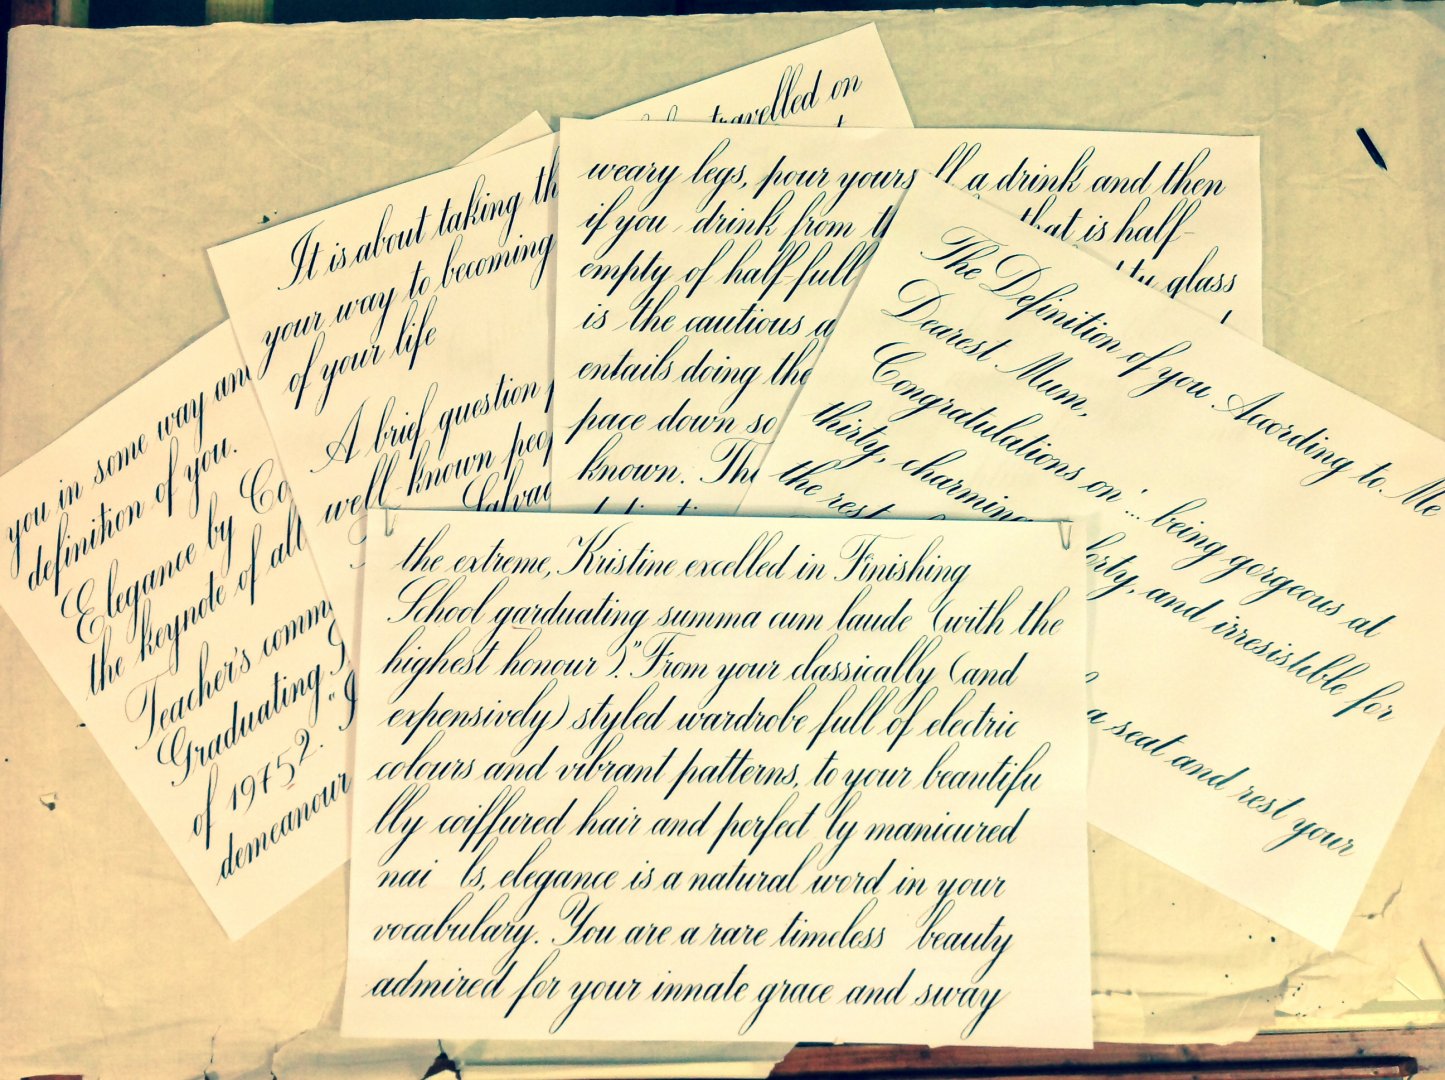 you in some way and
definition of you.
Elegance by Co
the keynote of all
Teacher's comm
Graduating
of 19752. "
demeanour
It is about taking th
your way to becoming
of your life
A brief question
well-known peop
Salvad
travelled on
weary legs, pour yours ll a drink and then
if you drink from t that is half-
empty of half-full ty glass
is the cautious a
entails doing the
pace down so
known. The
The Definition of you According to Me
Dearest Mum,
Congratulations on '... being gorgeous at
thirty, charming forty, and irresistible for
the rest
a seat and rest your
the extreme, Kristine excelled in Finishing
School garduating summa cum laude (with the
highest honour)." From your classically (and
expensively) styled wardrobe full of electric
colours and vibrant patterns, to your beautifu
lly coiffured hair and perfect ly manicured
nai ls, elegance is a natural word in your
vocabulary. You are a rare timeless beauty
admired for your innate grace and sway